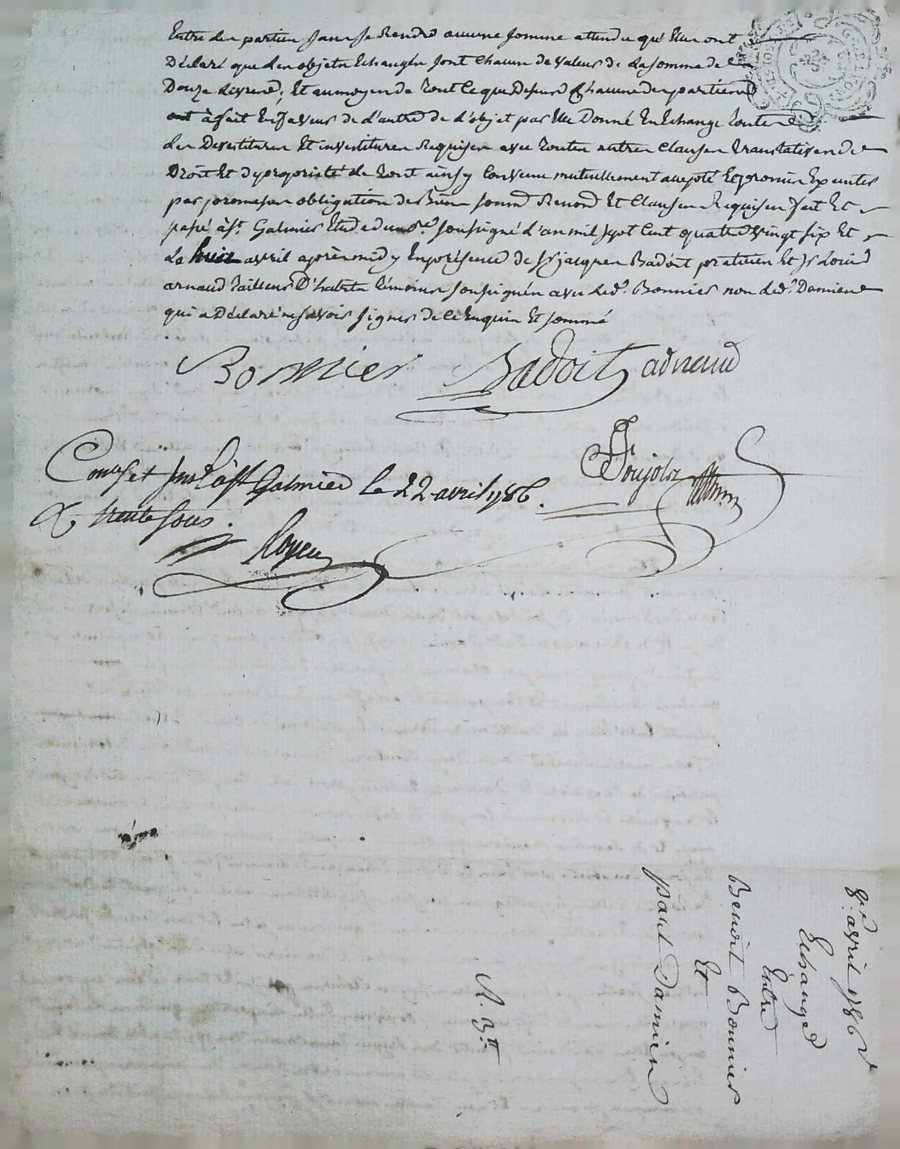 Entre les parties sans se rendre aucune somme attendu qu'elles ont
Déclaré que les objets Echangés sont chacun de valeur de la somme de
Douze Livres, Et au moyen de tout ce que dessus Chacune des parties
ont à fait En faveur de l'autre de l'objet par Elle Donné En Echange toutes
les devestitures Et investitures Requises avec toutes autres clauses translatives de
Droit Et de propriété de tout ainsy Convenu mutuellement accepté Et promis Executer
par promesse obligation de Biens soumis Renon.d Et Clauses Requises fait Et
passé à S.t Galmier Etude du No.re soussigné L'an mil sept Cent quatre vingt six Et
Le huit avril après midy En présence de S.r jacques Badoit praticien Et S.r Louis
arnaud tailleur D'habits témoins soussignés avec led.t Bonnier non led.t Damien
qui a Déclaré ne savoir signer de ce Enquis Et sommé
Bonnier Badoit arnaud
Pujols
Con.lé et Ins. à S.t Galmier le 22 avril 1786.
R. trente sous.
Royer
8.e avril 1786
Echange
Entre
Benoît Bonnier
Et
paul Damien
R 3.tt